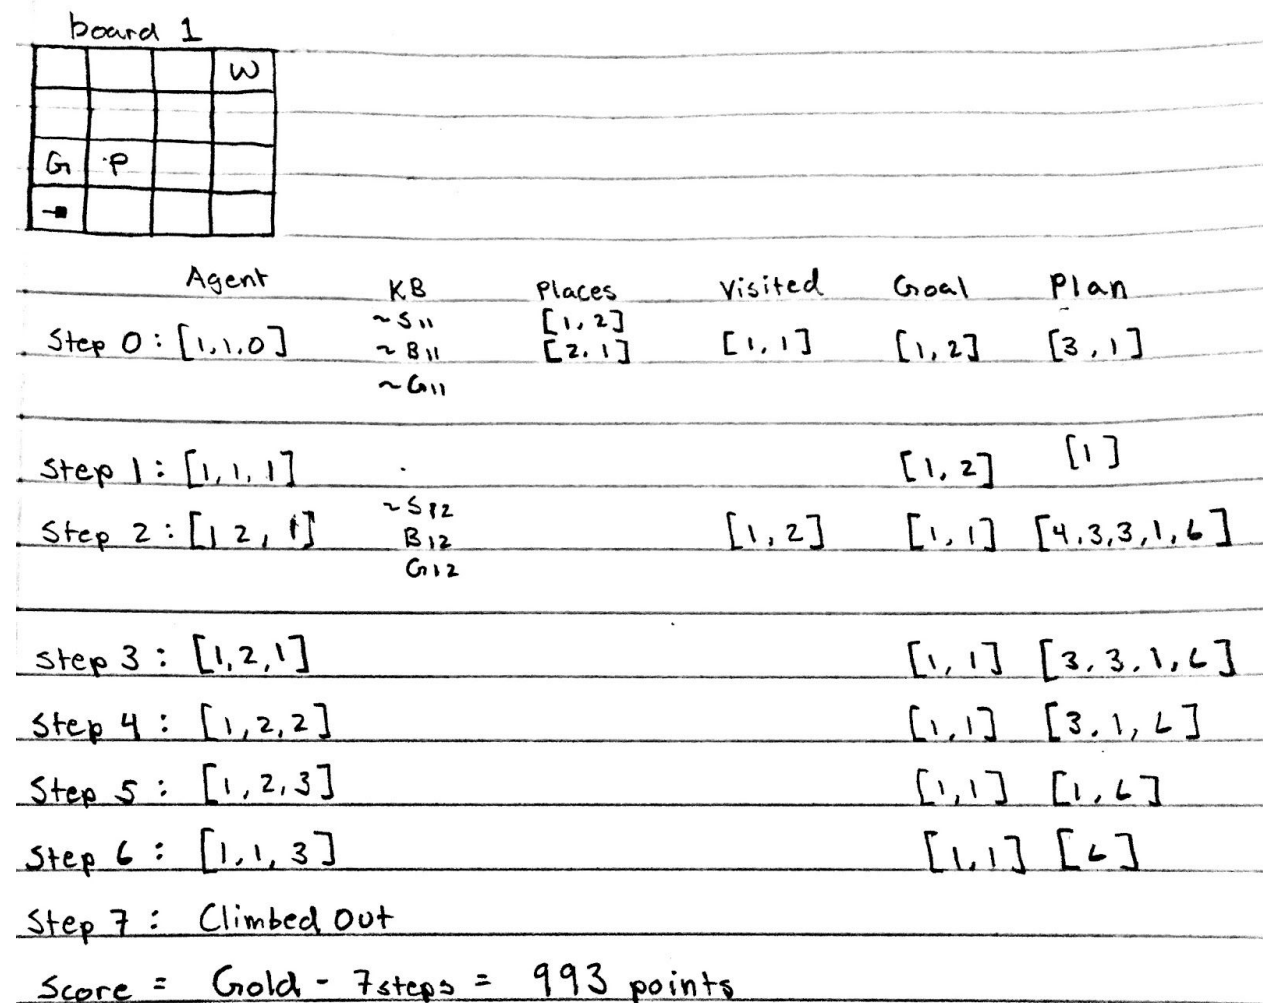 board 1
W
G P
Agent KB Places Visited Goal Plan
~S11 [1,2]
Step 0: [1,1,0] ~B11 [2,1] [1,1] [1,2] [3,1]
~G11
Step 1: [1,1,1] [1,2] [1]
~S12
Step 2: [1 2, 1] B12 [1,2] [1,1] [4,3,3,1,6]
G12
Step 3: [1,2,1] [1,1] [3,3,1,6]
Step 4: [1,2,2] [1,1] [3,1,6]
Step 5: [1,2,3] [1,1] [1,6]
Step 6: [1,1,3] [1,1] [6]
Step 7: Climbed Out
Score = Gold - 7steps = 993 points